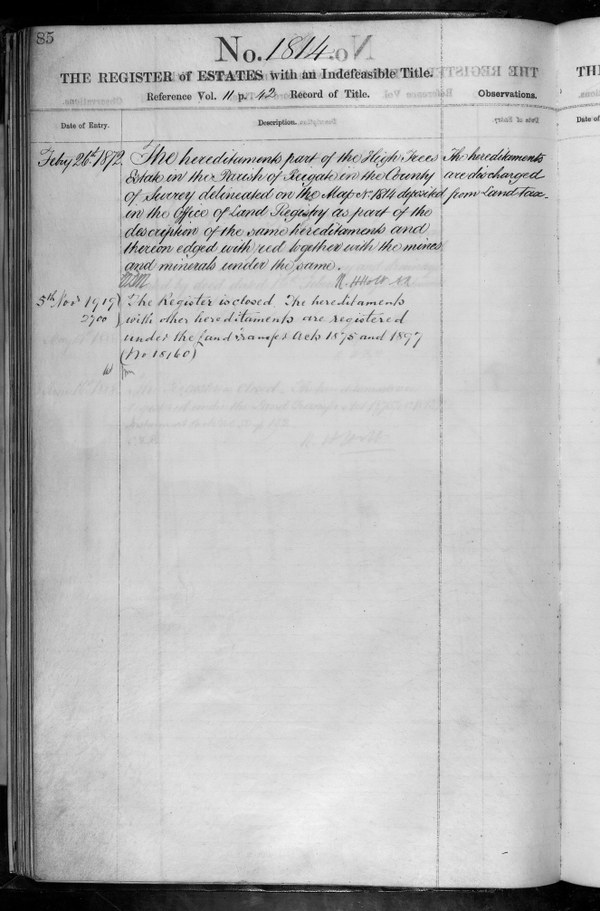 85
No. 1814.
THE REGISTER of ESTATES with an Indefeasible Title.
Reference Vol. 11 p. 42 Record of Title.
Observations.
Date of Entry.
Description.
Feby 26th 1872
The hereditaments part of the High Trees
Estate in the Parish of Reigate in the County
of Surrey delineated on the Map No 1814 deposited
in the Office of Land Registry as part of the
description of the same hereditaments and
thereon edged with red together with the mines
and minerals under the same.
The hereditaments
are discharged
from Land Tax.
R. H. Holt
5th Nov 1919
2700
The Register is closed The hereditaments
with other hereditaments are registered
under the Land Transfer Acts 1875 and 1897
(No 18160)
TH
Date of